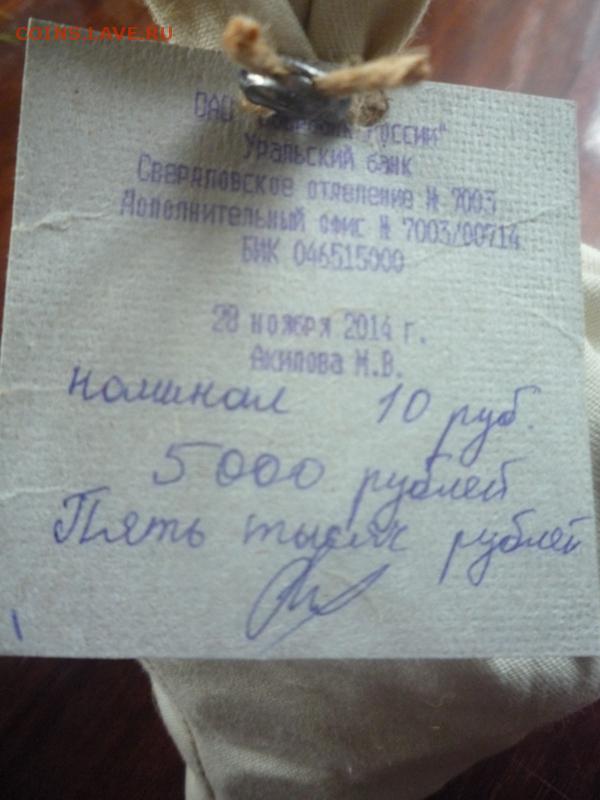 COINS.LAVE.RU
ОАО России"
Уральский банк
Свердловское отделение № 7003
Дополнительный офис № 7003/00714
БИК 046515000
28 ноября 2014 г.
Акилова М.В.
номинал 10 руб.
5000 рублей
Пять тысяч рублей